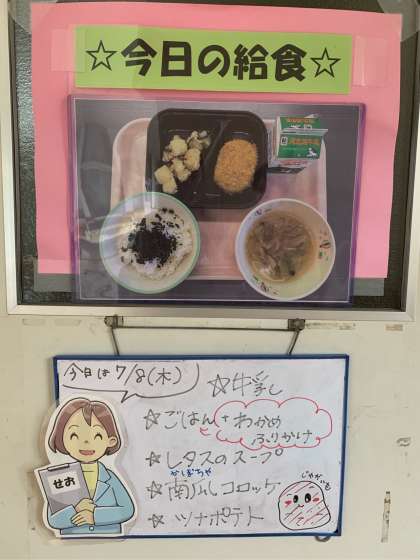 ☆今日の給食☆
今日は7/8(木)
☆牛乳
☆ごはん+わかめ
ふりかけ
☆レタスのスープ
かぼちゃ
☆南瓜コロッケ
☆ツナポテト
じゃがいも
せお